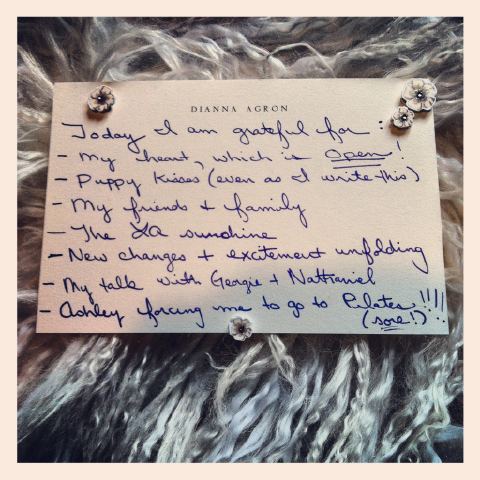 DIANNA AGRON
Today I am grateful for:
- My heart, which is open!
- Puppy kisses (even as I write this)
- My friends + family
- The LA sunshine
- New changes + excitement unfolding
- My talk with Georgie + Nathaniel
- Ashley forcing me to go to Pilates!!!!
(sore!)